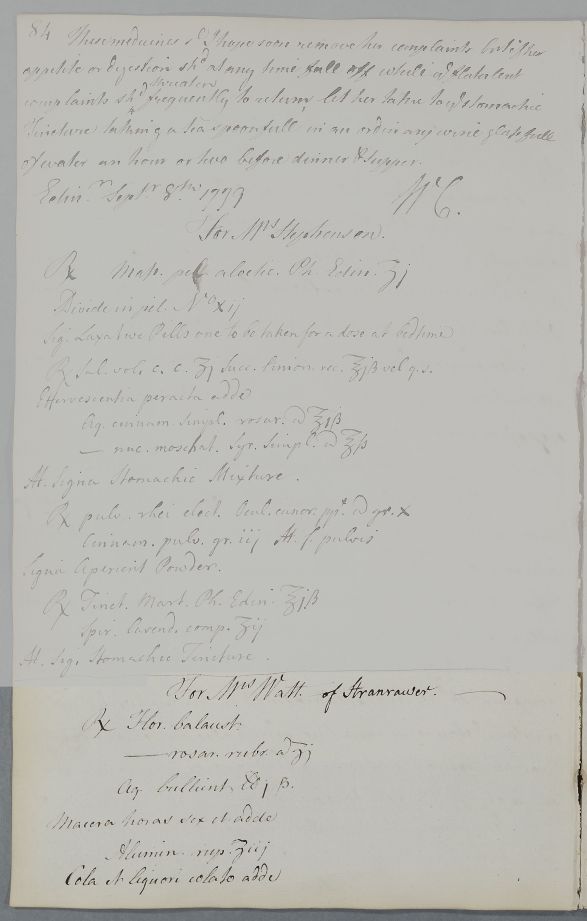 84
These medicines sd. I hope soon remove her complaints but if her
appetite or digestion shd. at any time fall off while ad flatulent
complaints shd. threaten frequently to return let her take to ye stomachic
Tincture taking a tea spoonfull in an ordinary wine glassfull
of water an hour or two before dinner & supper.
Edinr. Septr. 8th 1777 Wm C.
For Mrs Stephenson.
℞ Mass. pil. aloetic. Ph. Edin. ʒj
Divide in pil. No xij
Sig. Laxative Pills one to be taken for a dose at bedtime
℞ Sal. vol. c. c. ʒj Succ. limon. rec. ℥jß vel q.s.
Effervescentia peracta adde
Aq. cinnam. simpl. rosar. a ℥jß
— nuc. moschat. Syr. simpl. a ℥ß
M. Signa Stomachic Mixture.
℞ pulv. rhei elect. Ocul. cancr. ppt. a gr. x
Cinnam. pulv. gr. iij M. f. pulvis
Signa Aperient Powder.
℞ Tinct. Mart. Ph. Edin. ℥jß
Spir. lavend. comp. ʒij
M. Sig. Stomachic Tincture.
For Mrs Watt of Stranrawer.
℞ Flor. balaust.
— rosar. rubr. a ʒj
Aq. bullient. ℔j ß.
Macera horas sex et adde
Alumin. rup. ʒiij
Cola et liquori colato adde